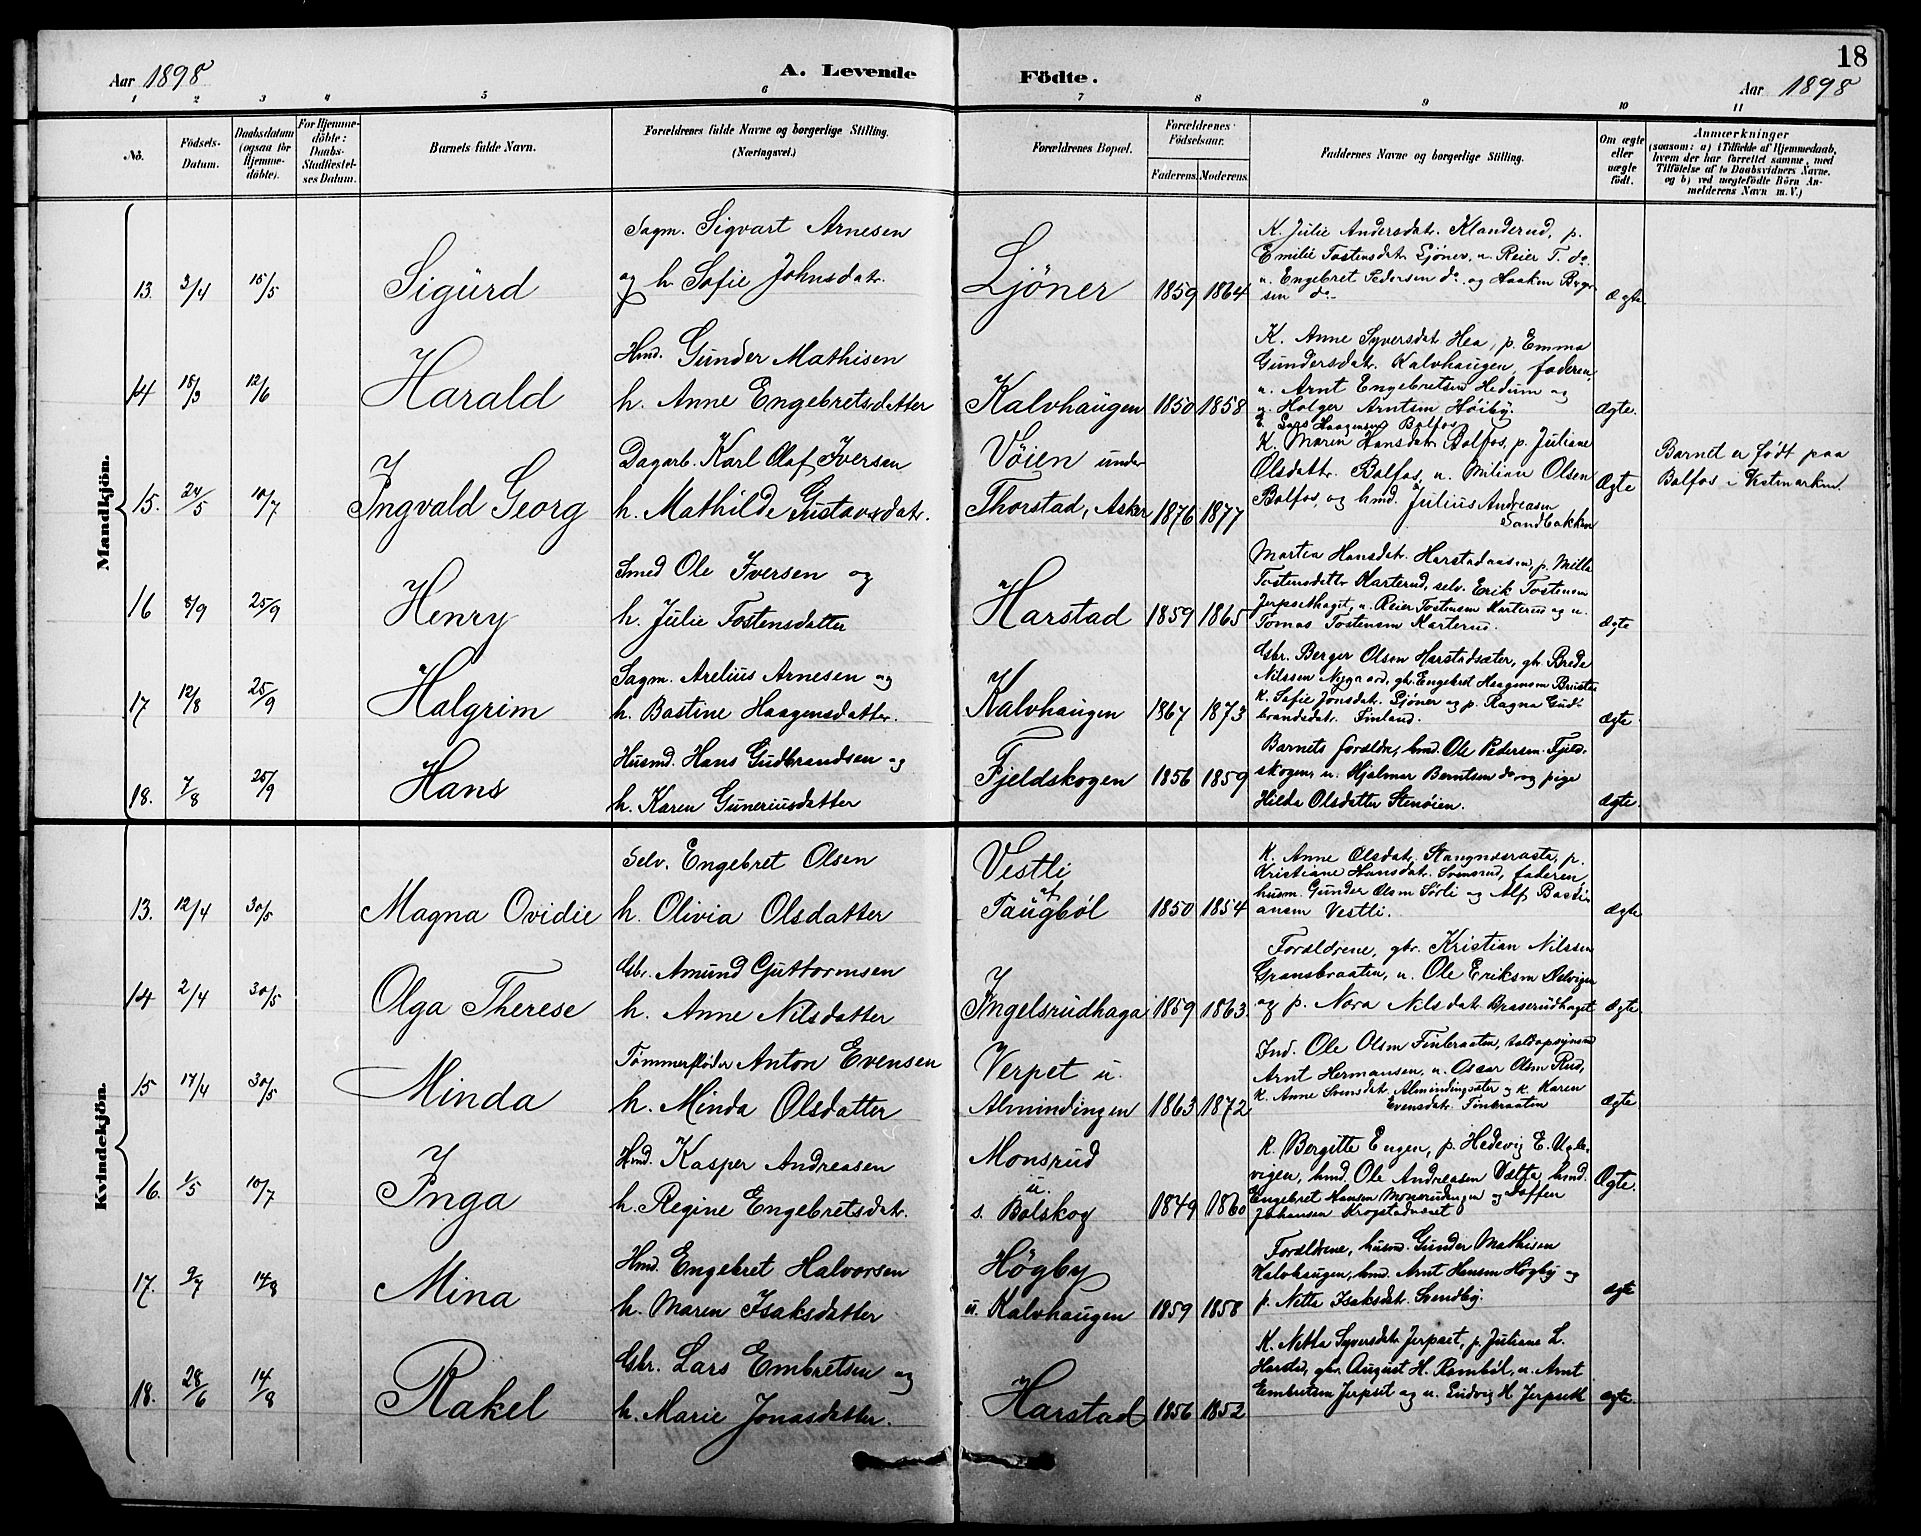 18
Aar 1898
A. Levende Födte.
Aar 1898
1 2 3 4 5 6 7 8 9 10 11
No.
Födsels-Datum.
Daabsdatum (ogsaa för Hjemmedöbte).
For Hjemmedöbte: Daabs-Stadfæstelses Datum.
Barnets fulde Navn.
Forældrenes fulde Navne og borgerlige Stilling. (Næringsvei.)
Forældrenes Bopæl.
Forældrenes Födselsaar.
Faderens. Moderens.
Faddernes Navne og borgerlige Stilling.
Om ægte eller uægte födt.
Anmærkninger
(saasom: a) i Tilfælde af Hjemmedaab, hvem der har forrettet samme, med Tilföielse af to Daabsvidners Navne, og b) ved uægtefödte Börn Anmelderens Navn m. V.)
Mandkjön.
13. 3/4 15/5 Sigurd
Sagm. Sigvart Arnesen
og h. Sofie Johnsdatr.
Ljöner 1859 1864
K. Julie Andersdatr. Klanderud, p.
Emilie Tostensdatr. Ljöner, u. Reier T. do
u. Engebret Pedersen do. og Haaken Byer
sen do
Ægte
14 18/3 12/6 Harald
Hmd. Gunder Mathisen
h. Anne Engebretsdatter
Kalvhaugen 1850 1858
K. Anne Syversdatr. Hea, p. Emma
Gundersdatr. Kalvhaugen, faderen,
u. Arnt Engebretsen Hedum og
u. Holger Arntsen Höiby.
Ægte.
15. 24/5 10/7 Ingvald Georg
Dagarb. Karl Olaf Iversen
h. Mathilde Gustavsdatr.
Vöien under
Thorstad, Asker 1876 1877
E. Lars Haagensen Bolfos
K. Maren Hansdatr. Bolfos, p. Juliane
Olsdattr. Bolfos, u. Milian Olsen
Bolfos, og hmd. Julius Andreasen
Sandbakken
Ægte
Barnet er født paa
Bolfos i Vestmarken.
16 8/9 25/9 Henry
Smed Ole Iversen og
h. Julie Tostensdatter
Harstad 1859 1865
Martea Hansdatr. Harstadaasen, p. Milla
Tostensdattr Karterud, selv. Erik Tostensen
Jerpsethaget, u. Reier Tostensen Karterud og u.
Tomas Tostensen Karterud.
Ægte
17 12/8 25/9 Halgrim
Sagm. Arelius Arnesen og
h. Bastine Haagensdatter.
Kalvhaugen 1867 1873
Gbr. Berger Olsen Harstadsæter, gb. Brede
Nilssen Nygaard, gb. Engebret Haagensen Brustad
k. Sofie Jonsdatr. Ljöner og p. Ragna Gud-
brandsdatr. Finland.
Ægte
18. 7/8 25/9 Hans
Husmd. Hans Gudbrandsen og
h. Karen Guneriusdatter
Fjeldskogen 1856 1859
Barnets forældre, hmd. Ole Pedersen Fjeld-
skogen, u. Hjalmar Berntsen do og pige
Hilda Olsdatter Stenöien.
Ægte.
Kvindekjön.
13. 12/4 30/5 Magna Ovidie
Selv. Engebret Olsen
h. Olivia Olsdatter
Vestli
af
Taugböl 1850 1854
K. Anne Olsdatr. Stangnæsrasta, p.
Kristiane Hansdatr. Svensrud, faderen
husm. Gunder Olsen Sörli og Alf Basti-
ansen Vestli.
Ægte
14 2/4 30/5 Olga Therese
Gbr. Amund Guttormsen
h. Anne Nilsdatter
Ingelsrudhaga 1859 1863
Forældrene, gbr. Kristian Nilssen
Gransbraaten, u. Ole Eriksen Selvigen
og p. Nora Nilsdatr. Braserudhaget
Ægte.
15 17/4 30/5 Minda
Tømmerfløder Anton Evensen
h. Minda Olsdatter
Verpet u.
Almindingen 1863 1872
Ind. Ole Olsen Finbraaten, toldopsynsmd
Arnt Hermansen, u. Oscar Olsen Rud,
k. Anne Svensdatr. Almindingsæter og k. Karen
Evensdatr. Finbraaten
Ægte.
16. 1/5 10/7 Inga
Hmd. Kasper Andreasen
h. Regine Engebretsdatr.
Monsrud
u.
s. Bölskog 1849 1860
K. Bergitte Engen, p. Hedevig E. Ugle-
vigen, hmd. Ole Andreasen Vælta, hmd.
Engebret Hansen Monsrudengen og Toffen
Johansen Krogstadnæset
Ægte.
17. 9/7 14/8 Mina
Hmd. Engebret Halvorsen
h. Maren Isaksdatter
Høgby
u. Kalvhaugen 1859 1858
Forældrene, husmd. Gunder Mathisen
Kalvhaugen, hmd. Arnt Hansen Høgby og
p. Netta Isaksdatr. Svendby.
ægte
18. 28/6 14/8 Rakel
Gbr. Lars Embretsen og
h. Marie Jonasdatter.
Harstad 1856 1852
K. Netta Syversdatr Jerpset, p. Juliane L.
Harstad, gbr. August H. Romböl, u. Arnt
Embretsen Jerpset og u. Ludvig H. Jerpseth
ægte